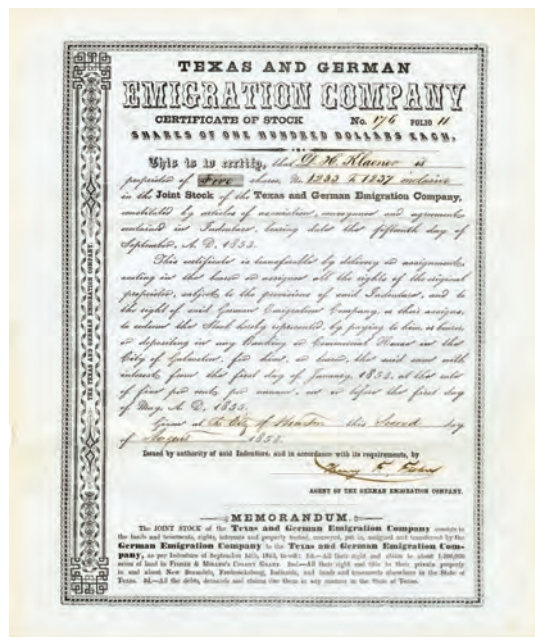 TEXAS AND GERMAN
EMIGRATION COMPANY
CERTIFICATE OF STOCK No. 176 FOLIO 11
SHARES OF ONE HUNDRED DOLLARS EACH.
This is to certify, that D. H. Klaener is
proprietor of Five shares, No 1233 to 1237 inclusive
in the Joint Stock of the Texas and German Emigration Company,
constituted by articles of association, covenants and agreements
contained in Indenture, bearing date the fifteenth day of
September, A. D. 1853.
This certificate is transferable by delivery or assignment
vesting in the bearer or assignee all the rights of the original
proprietor, subject to the provisions of said Indenture, and to
the right of said German Emigration Company, or their assigns,
to redeem the Stock hereby represented, by paying to him or bearer
or depositing in any Banking or Commercial House in the
City of Galveston, for him, or bearer, the said sum with
interest from the first day of January, 1854, at the rate
of five per cent per annum, on or before the first day
of May, A. D. 1855.
Given at the City of Houston this Second day
of 185
Issued by authority of said Indenture, and in accordance with its requirements, by
Henry F. Fisher
AGENT OF THE GERMAN EMIGRATION COMPANY.
MEMORANDUM.
The JOINT STOCK of the Texas and German Emigration Company consists in
the lands and tenements, rights, interests and property vested, conveyed, put in, assigned and transferred by the
German Emigration Company to the Texas and German Emigration Com-
pany, as per Indenture of September 15th, 1853, to wit: 1st.—All their right and claim to about
acres of land in FISHER & MILLER'S COLONY GRANT. 2nd.—All their right and title to their private property
in and about New Braunfels, Fredericksburg, Indianola, and lands and tenements elsewhere in the State of
Texas. 3d.—All the debts, demands and claims due them in any manner in the State of Texas.
THE TEXAS AND GERMAN EMIGRATION COMPANY.